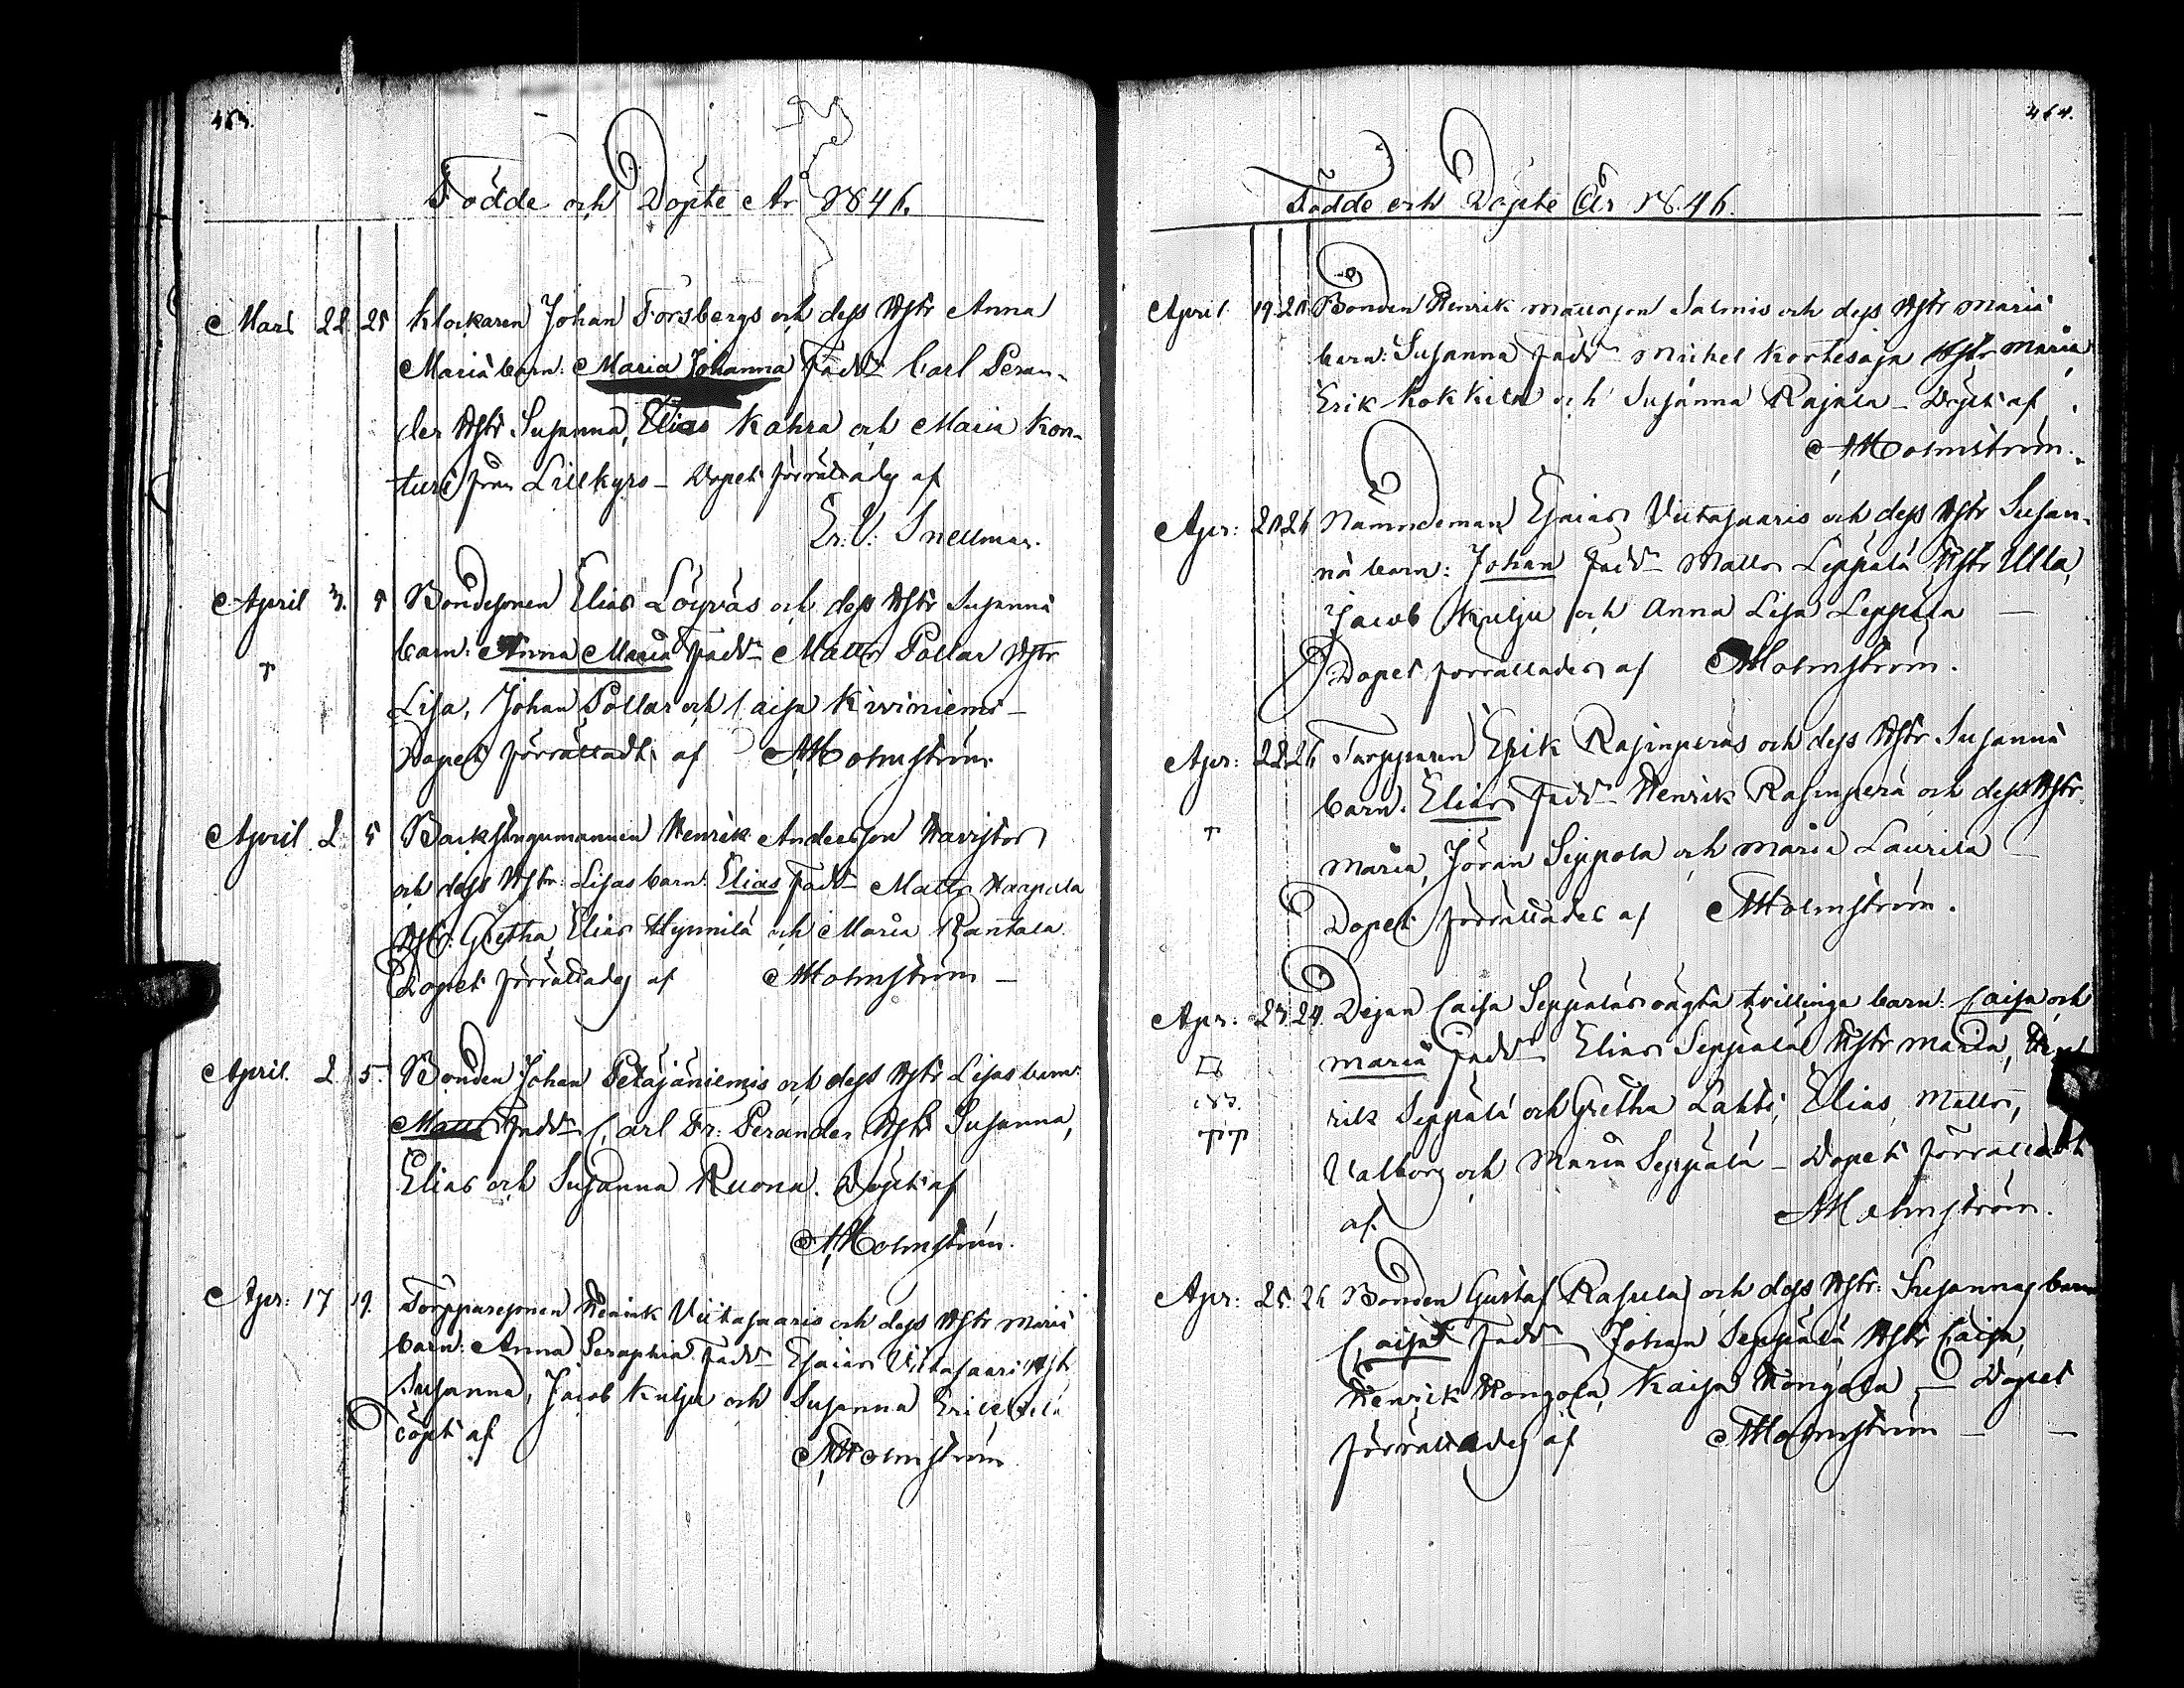 463.
Födde och Döpte År 1846.
Mars 22. 25 Klockaren Johan Forsbergs och dess Hstr Anna
Mariä barn: Maria Johanna Fadd. Carl Peran-
der Hstr Susanna, Elias Kahra och Maria Kon-
turi från Lillkyro – Dopet förrättades af
Er. V. Snellman.
April 3. 5 Bondesonen Elias Löyväs och dess Hstr Susannä
barn: Anna Maria Fadd. Matts Pollar Hstr
Lisa, Johan Pollar och Caisa Kiviniemi –
Dopet förrättadt af AHolmström
April 2 5 Backstugumannen Henrik Andersson Haristos
och dess Hstr: Lisas barn: Elias Fadd. Matts Haapala
Hstr: Gretha, Elias Hynnilä och Maria Rantala
Dopet förrättades af AHolmström –
April. 2. 5. Bonden Johan Petäjäniemis och dess Hstr Lisas barn:
Matts Fadd. Carl Fr: Perander Hstr Susanna,
Elias och Susanna Ruona. Döpt af
AHolmström.
Apr: 17 19. Torpparesonen Henrik Viitasaaris och dess Hstr Mariä
barn: Anna Seraphia Fadd. Esaias Viitasaari Hstr
Susanna, Jacob Kulju och Susanna
Döpt af
AHolmström
464.
Födde och Döpte År 1846.
April 19. 20 Bonden Henrik Mattsson Salmis och dess Hstr Mariä
barn: Susanna Fadd. Michel Kortesoja Hstr Maria
Erik Kokkila och Susanna Rajala – Döpt af
AHolmström.
Apr: 20 26 Nämndeman Esaias Viitasaaris och dess Hstr Susan-
nä barn: Johan Fadd. Matts Leppälä Hstr Ulla,
Jacob Kulju och Anna Lisa Leppälä –
Dopet förrättades af AHolmström.
Apr: 22. 26 Torpparen Erik Rasinperäs och dess Hstr Susannä
barn: Elias Fadd. Henrik Rasinperä och dess Hstr
Maria, Jöran Seppola och Maria Laurila –
Dopet förrättades af AHolmström.
Apr: 23. 24. Pigan Caisa Seppäläs oägta tvillinga barn: Caisa och
Maria Fadd. Elias Seppälä Hstr Maria, Hen-
rik Seppälä och Gretha Lahti, Elias, Matts,
Valborg och Maria Seppälä – Dopet förrättadt
af AHolmström.
Apr: 25. 26 Bonden Gustaf Rasula och dess Hstr: Susannas barn
Caisa Fadd. Johan Seppälä Hstr Caisa,
Henrik Hongola, Kaisa Hongola – Dopet
förrättades af AHolmström –